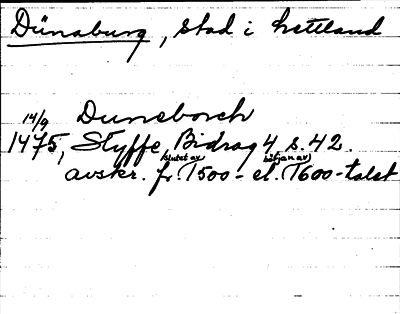 Dünaburg, stad i Lettland
14/9 Duneborch
1475, Styffe, Bidrag 4 s. 42.
(slutet av) (början av)
avskr. fr. 1500- el. 1600-talet